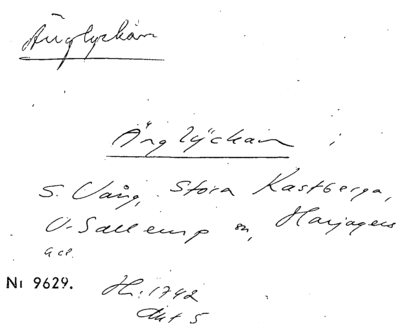 Änglyckan
Änglyckan i
S. Vång, Stora Kastberga,
V. Sallerup sn, Harjagers
hd.
Nr 9629.
H: 1742
Akt 5